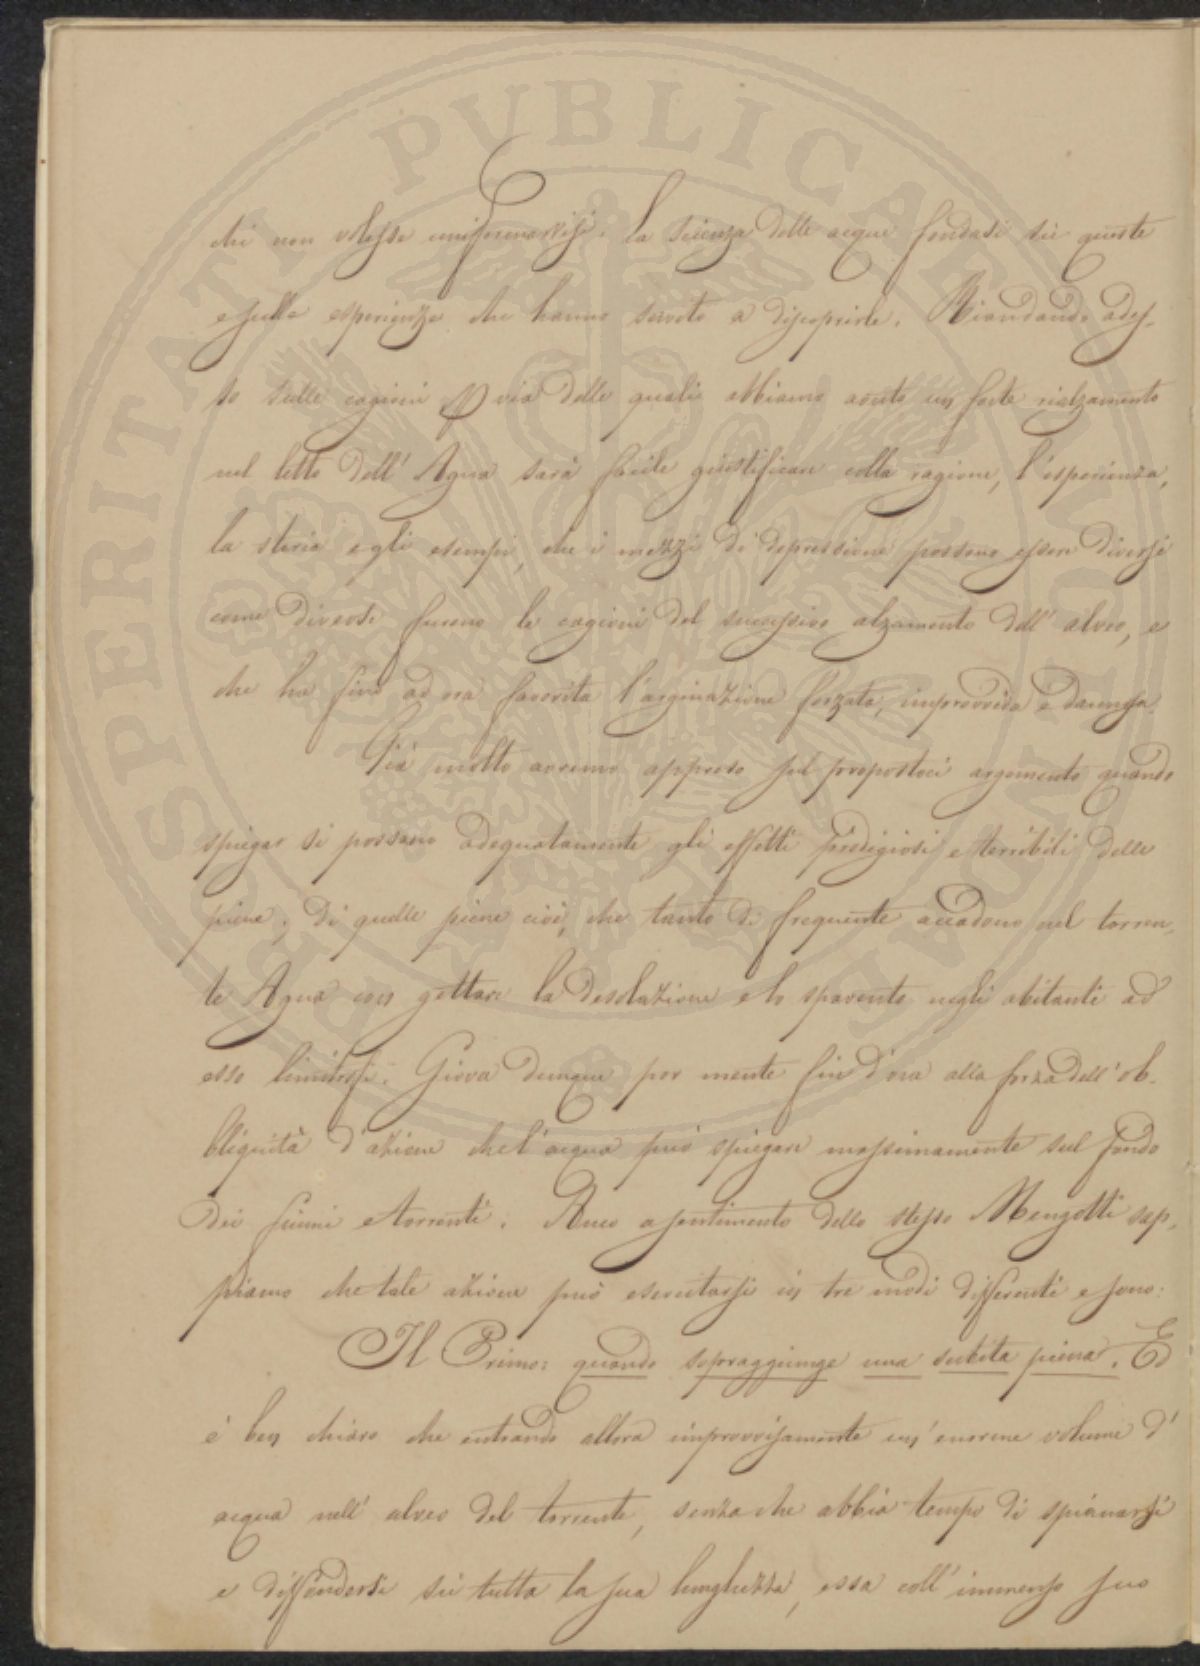 chi non volesse uniformarvisi. La scienza delle acque fondasi su queste
e sulle esperienze che hanno servito a discoprirle. Riandando ades-
so sulle cagioni p via delle quali abbiamo avuto un forte rialzamento
nel letto dell'Agna sarà facile giustificare colla ragione, l'esperienza,
la storia e gli esempi, che i mezzi di depressione possono essere diversi
come diverse furono le cagioni del successivo alzamento dell'alveo, e
che ha fino ad ora favorita l'arginazione forzata, improvvida e dannosa.
Già molto avremo appreso sul propostoci argomento quando
spiegar si possano adequatamente gli effetti prodigiosi e terribili delle
piene; di quelle piene cioè, che tanto di frequente accadono nel torren-
te Agna con gettare la desolazione e lo spavento negli abitanti ad
esso limitrofi. Giova dunque por mente fin d'ora alla forza dell'ob-
bliquità d'azione che l'acqua può spiegare massimamente sul fondo
dei fiumi e torrenti. Anco a sentimento dello stesso Mengotti sap-
piamo che tale azione può esercitarsi in tre modi differenti e sono:
Il Primo: quando sopraggiunge una subita piena. Ed
è ben chiaro che entrando allora improvvisamente un'enorme volume d'
acqua nell'alveo del torrente, senza che abbia tempo di spianarsi
e diffondersi su tutta la sua lunghezza, essa coll'immenso suo
PUBLICAE
SPERITATI